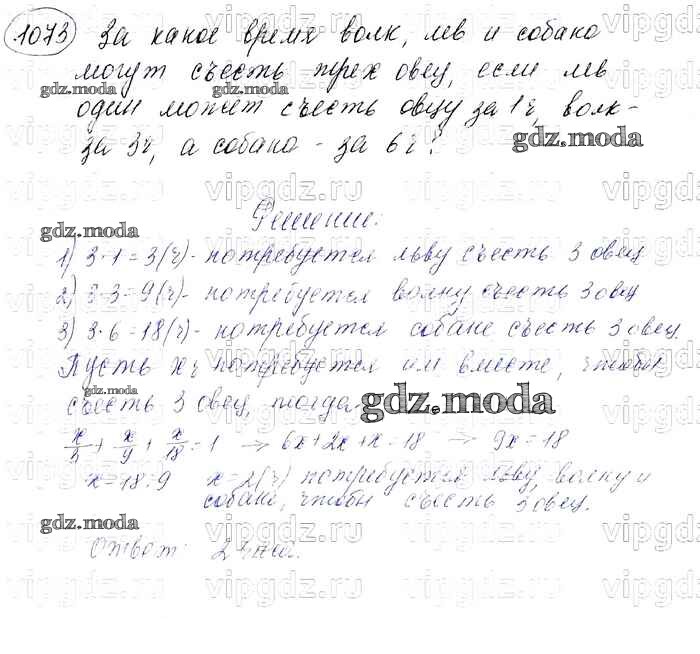 1073 За какое время волк, лев и собака
могут съесть трех овец, если лев
один может съесть овцу за 1ч, волк-
за 3ч, а собака - за 6ч?
Решение:
1) 3·1=3(ч)- потребуется льву съесть 3 овец
2) 3·3=9(ч)- потребуется волку съесть 3 овец
3) 3·6=18(ч)- потребуется собаке съесть 3 овец.
Пусть xч потребуется им вместе, чтобы
съесть 3 овец, тогда
x/3 + x/9 + x/18 = 1 → 6x+2x+x=18 → 9x=18
x=18:9 x=2(ч) потребуется льву, волку и
собаке, чтобы съесть 3 овец.
Ответ: 2 часа.
gdz.moda
vipgdz.ru